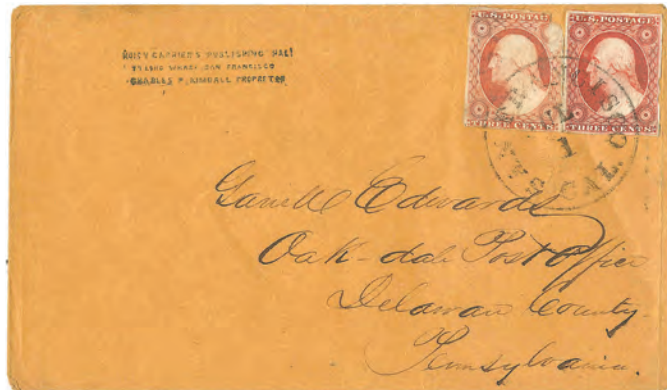 NOISY CARRIER'S PUBLISHING HALL
77 LONG WHARF SAN FRANCISCO
CHARLES P. KIMBALL PROPRETOR
U.S. POSTAGE
THREE CENTS
U.S. POSTAGE
THREE CENTS
SAN FRANCISCO
JUL
1
CAL.
Edwards
Oak-dale Post Office
Delaware County
Pennsylvania.